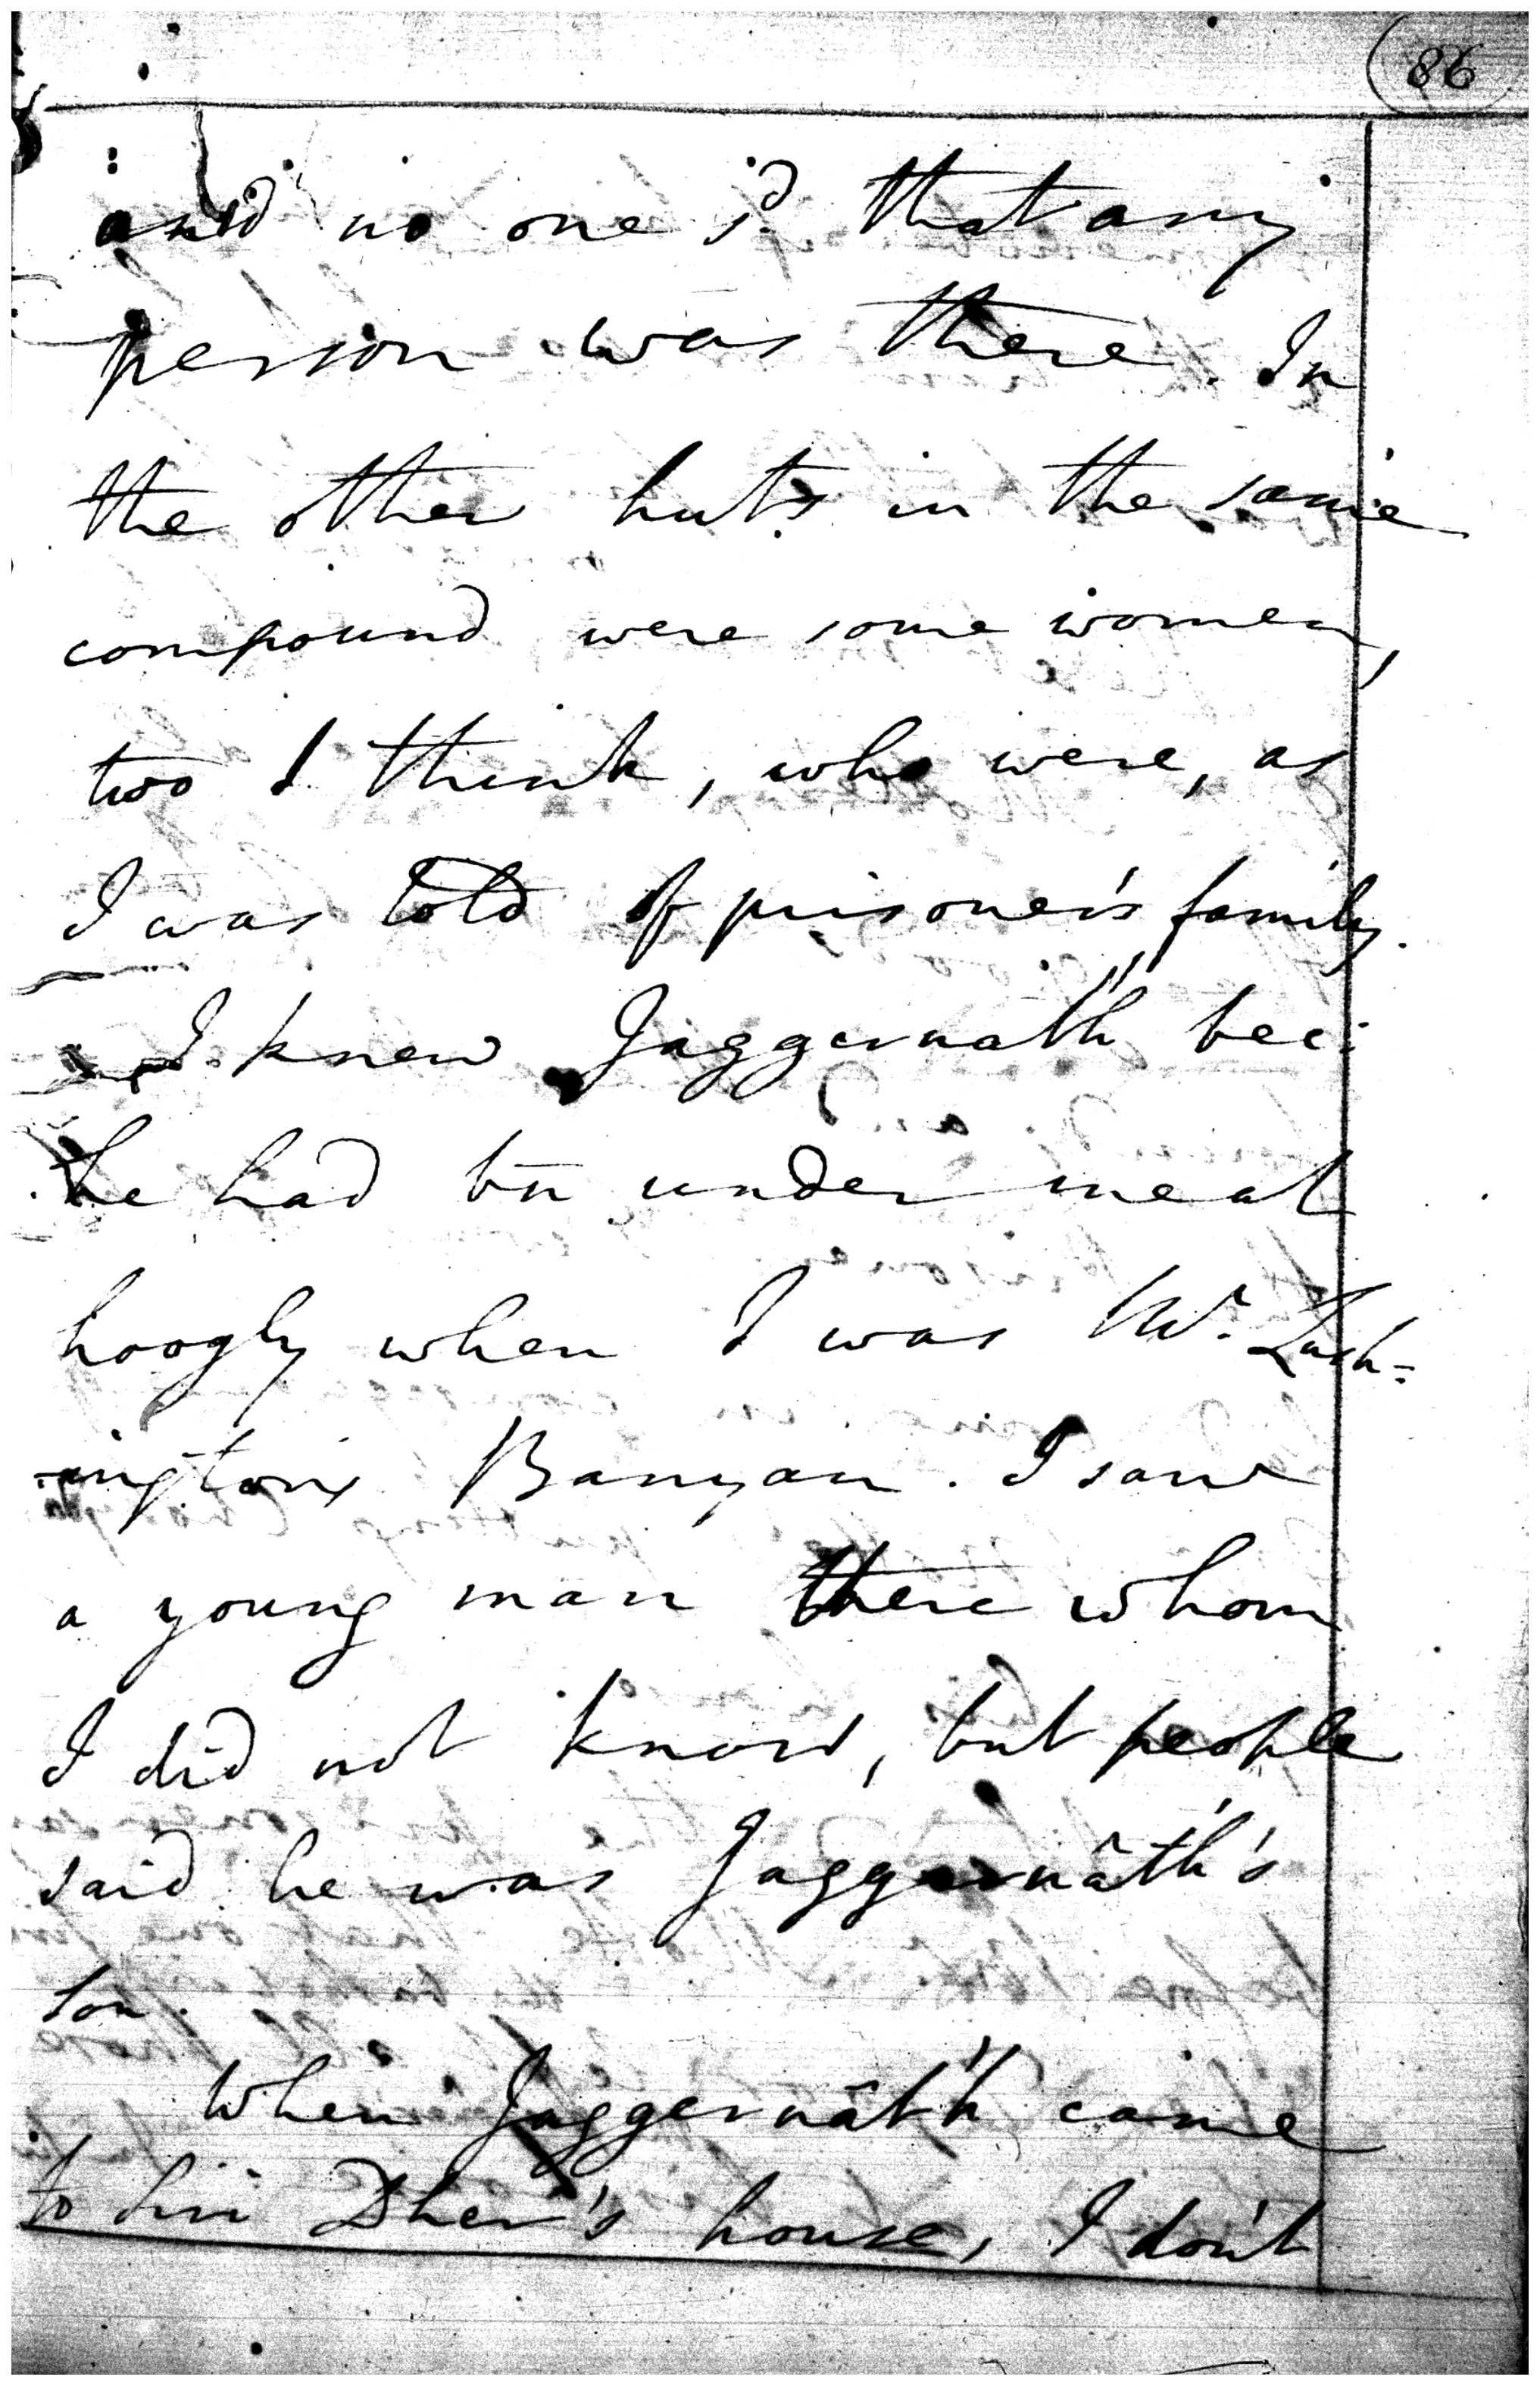 86
and no one sd. that any
person was there. In
the other huts in the same
compound were some women,
two I think, who were, as
I was told of prisoner's family.
I knew Jaggernáth bec:
he had bn under me at
hoogly when I was Mr. Lush=
=ington's Banyan. I saw
a young man there whom
I did not know, but people
said he was Jaggernâth's
son.
When Jaggernâth came
to his Dher's house, I don't